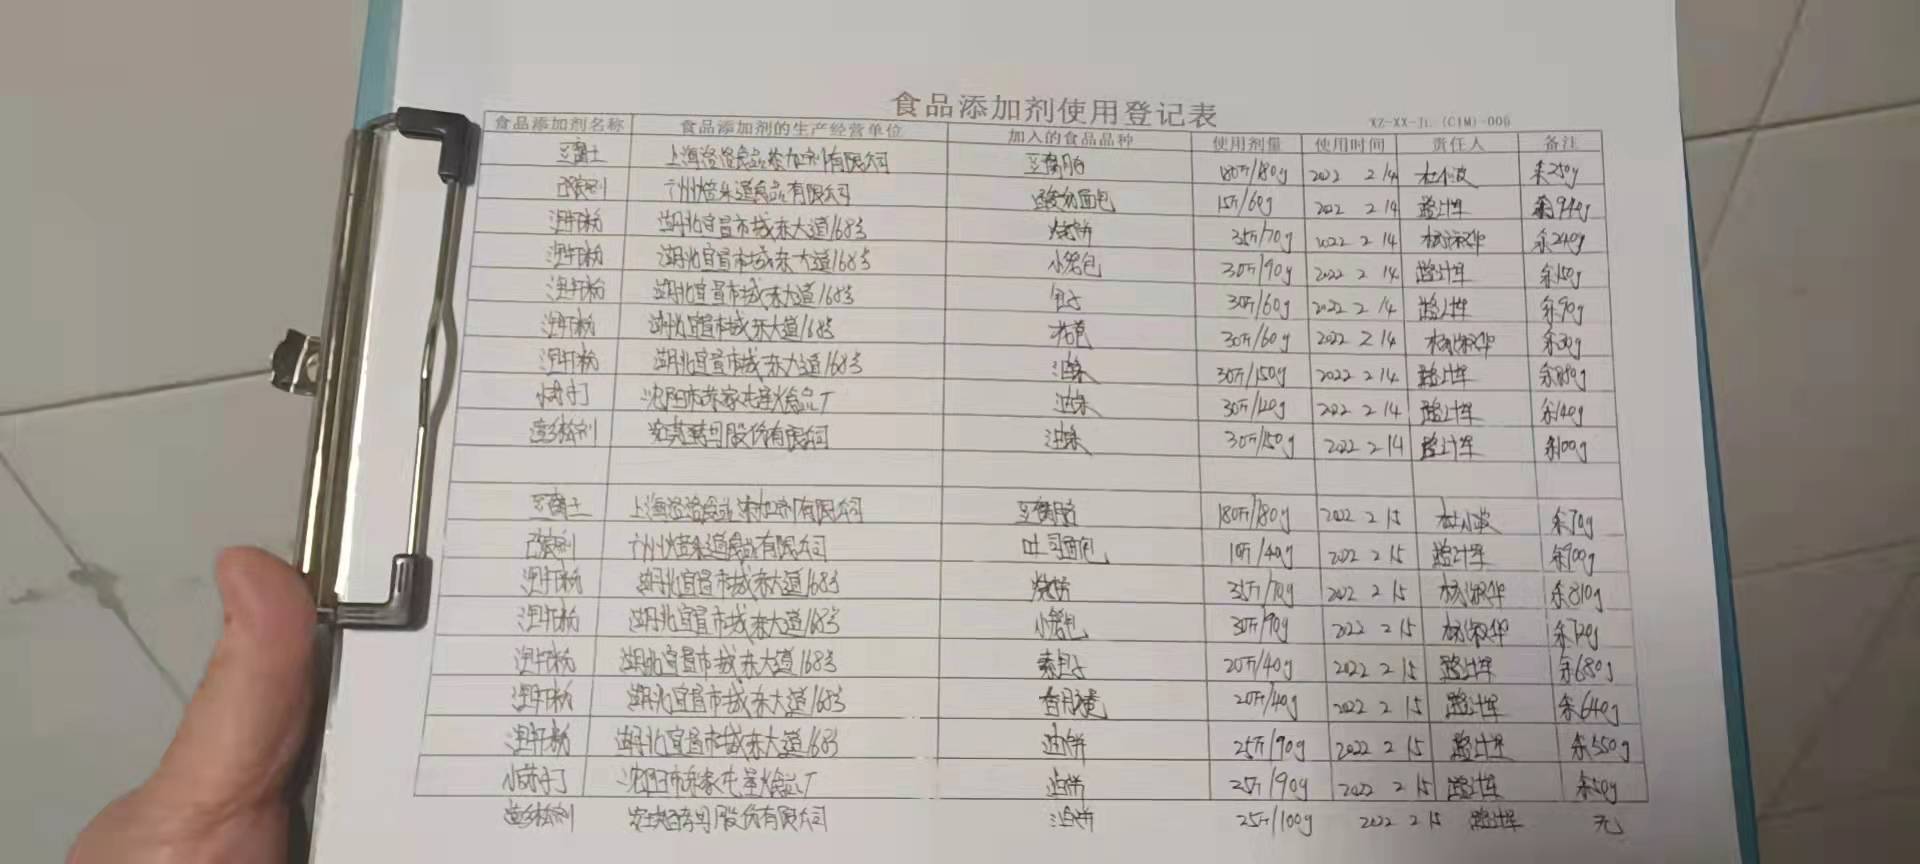 食品添加剂使用登记表
XZ-XX-JL(CIM)-006
食品添加剂名称 食品添加剂的生产经营单位 加入的食品品种 使用剂量 使用时间 责任人 备注
上海 食品添加剂有限公司 豆腐脑 180斤/180g 2022 2 14 杜小波 余250g
改良剂 广州焙乐道食品有限公司 酸奶面包 15斤/60g 2022 2 14 余940g
泡打粉 湖北宜昌市城东大道168号 烧饼 35斤/70g 2022 2 14 杨淑华 余240g
泡打粉 湖北宜昌市城东大道168号 小笼包 30斤/90g 2022 2 14 余150g
泡打粉 湖北宜昌市城东大道168号 包子 30斤/60g 2022 2 14 余90g
泡打粉 湖北宜昌市城东大道168号 30斤/60g 2022 2 14 杨淑华 余30g
泡打粉 湖北宜昌市城东大道168号 油条 30斤/150g 2022 2 14
小苏打 沈阳市苏家屯 食品厂 油条 30斤/120g 2022 2 14 余140g
蓬松剂 安琪酵母股份有限公司 油条 30斤/150g 2022 2 14 余100g
上海 食品添加剂有限公司 豆腐脑 180斤/180g 2022 2 15 杜小波 余70g
改良剂 广州焙乐道食品有限公司 吐司面包 10斤/40g 2022 2 15 余900g
泡打粉 湖北宜昌市城东大道168号 烧饼 35斤/70g 2022 2 15 杨淑华 余810g
泡打粉 湖北宜昌市城东大道168号 小笼包 30斤/90g 2022 2 15 杨淑华 余720g
泡打粉 湖北宜昌市城东大道168号 素包子 20斤/40g 2022 2 15 余680g
泡打粉 湖北宜昌市城东大道168号 20斤/40g 2022 2 15 余640g
泡打粉 湖北宜昌市城东大道168号 油饼 25斤/90g 2022 2 15 余550g
小苏打 沈阳市苏家屯 食品厂 油饼 25斤/90g 2022 2 15 余50g
蓬松剂 安琪酵母股份有限公司 油饼 25斤/100g 2022 2 15 无